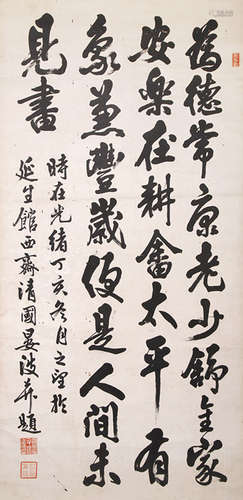 為德常康老少歸全家
安樂在耕畬太平有
象兼豐歲便是人間未
見書
時在光緒丁亥冬月之望於
延生館西齋清國晏波弁題